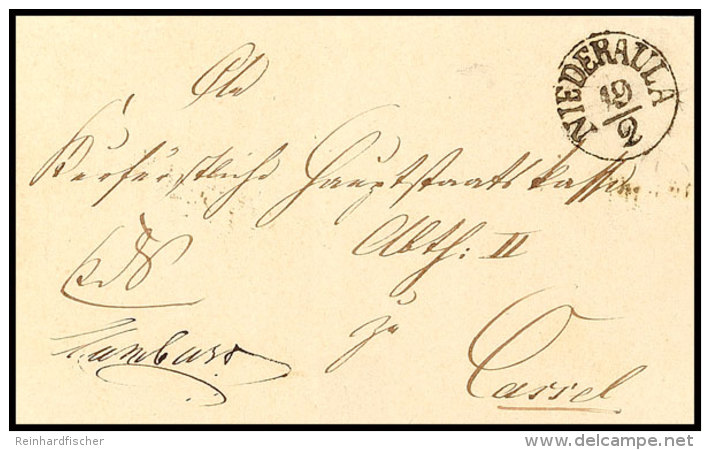 NIEDERAULA
19/2
An
Kurfürstliche Hauptstaatskasse
Abth: II
zu
Cassel
Reinhardfischer
delcampe.net